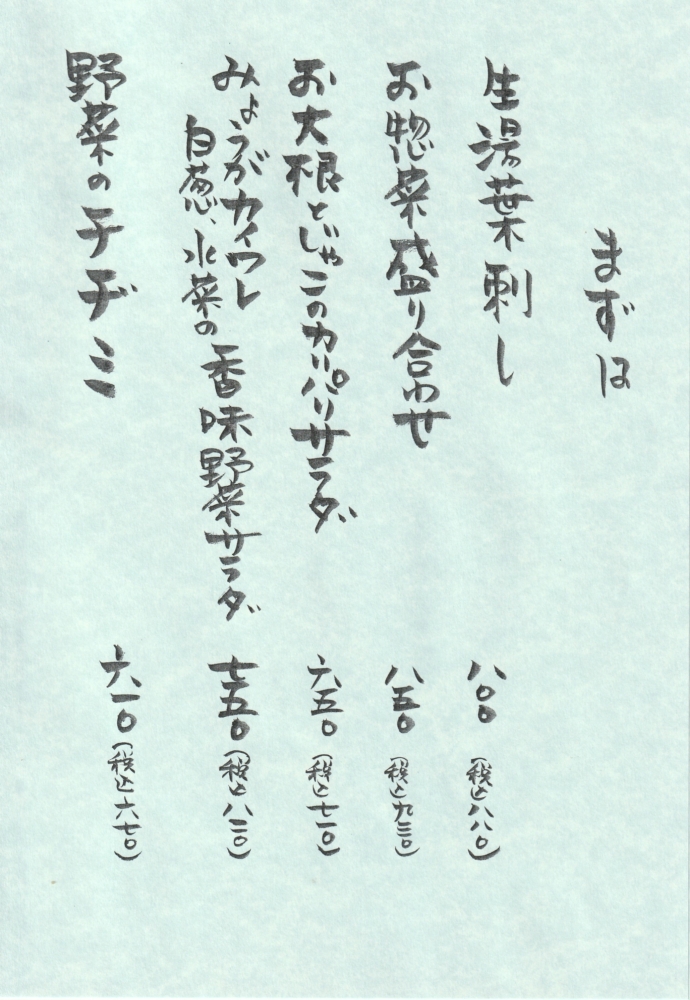 まずは
生湯葉刺し 八〇〇(税込八八〇)
お惣菜盛り合わせ 八五〇(税込九三〇)
お大根とじゃこのカリパリサラダ 六五〇(税込七一〇)
みょうがカイワレ
白葱、水菜の香味野菜サラダ 七五〇(税込八二〇)
野菜のチヂミ 六一〇(税込六七〇)